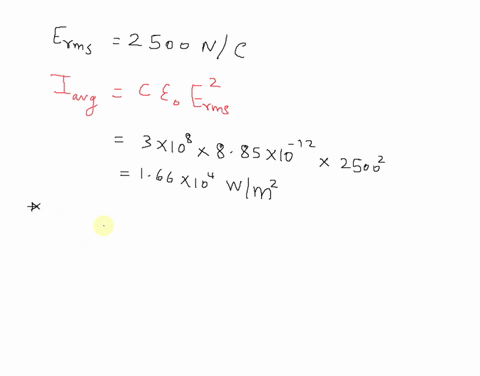 E_rms = 2500 N/C
I_avg = C ε₀ E²_rms
= 3×10⁸ × 8.85×10⁻¹² × 2500²
= 1.66×10⁴ W/m²
*